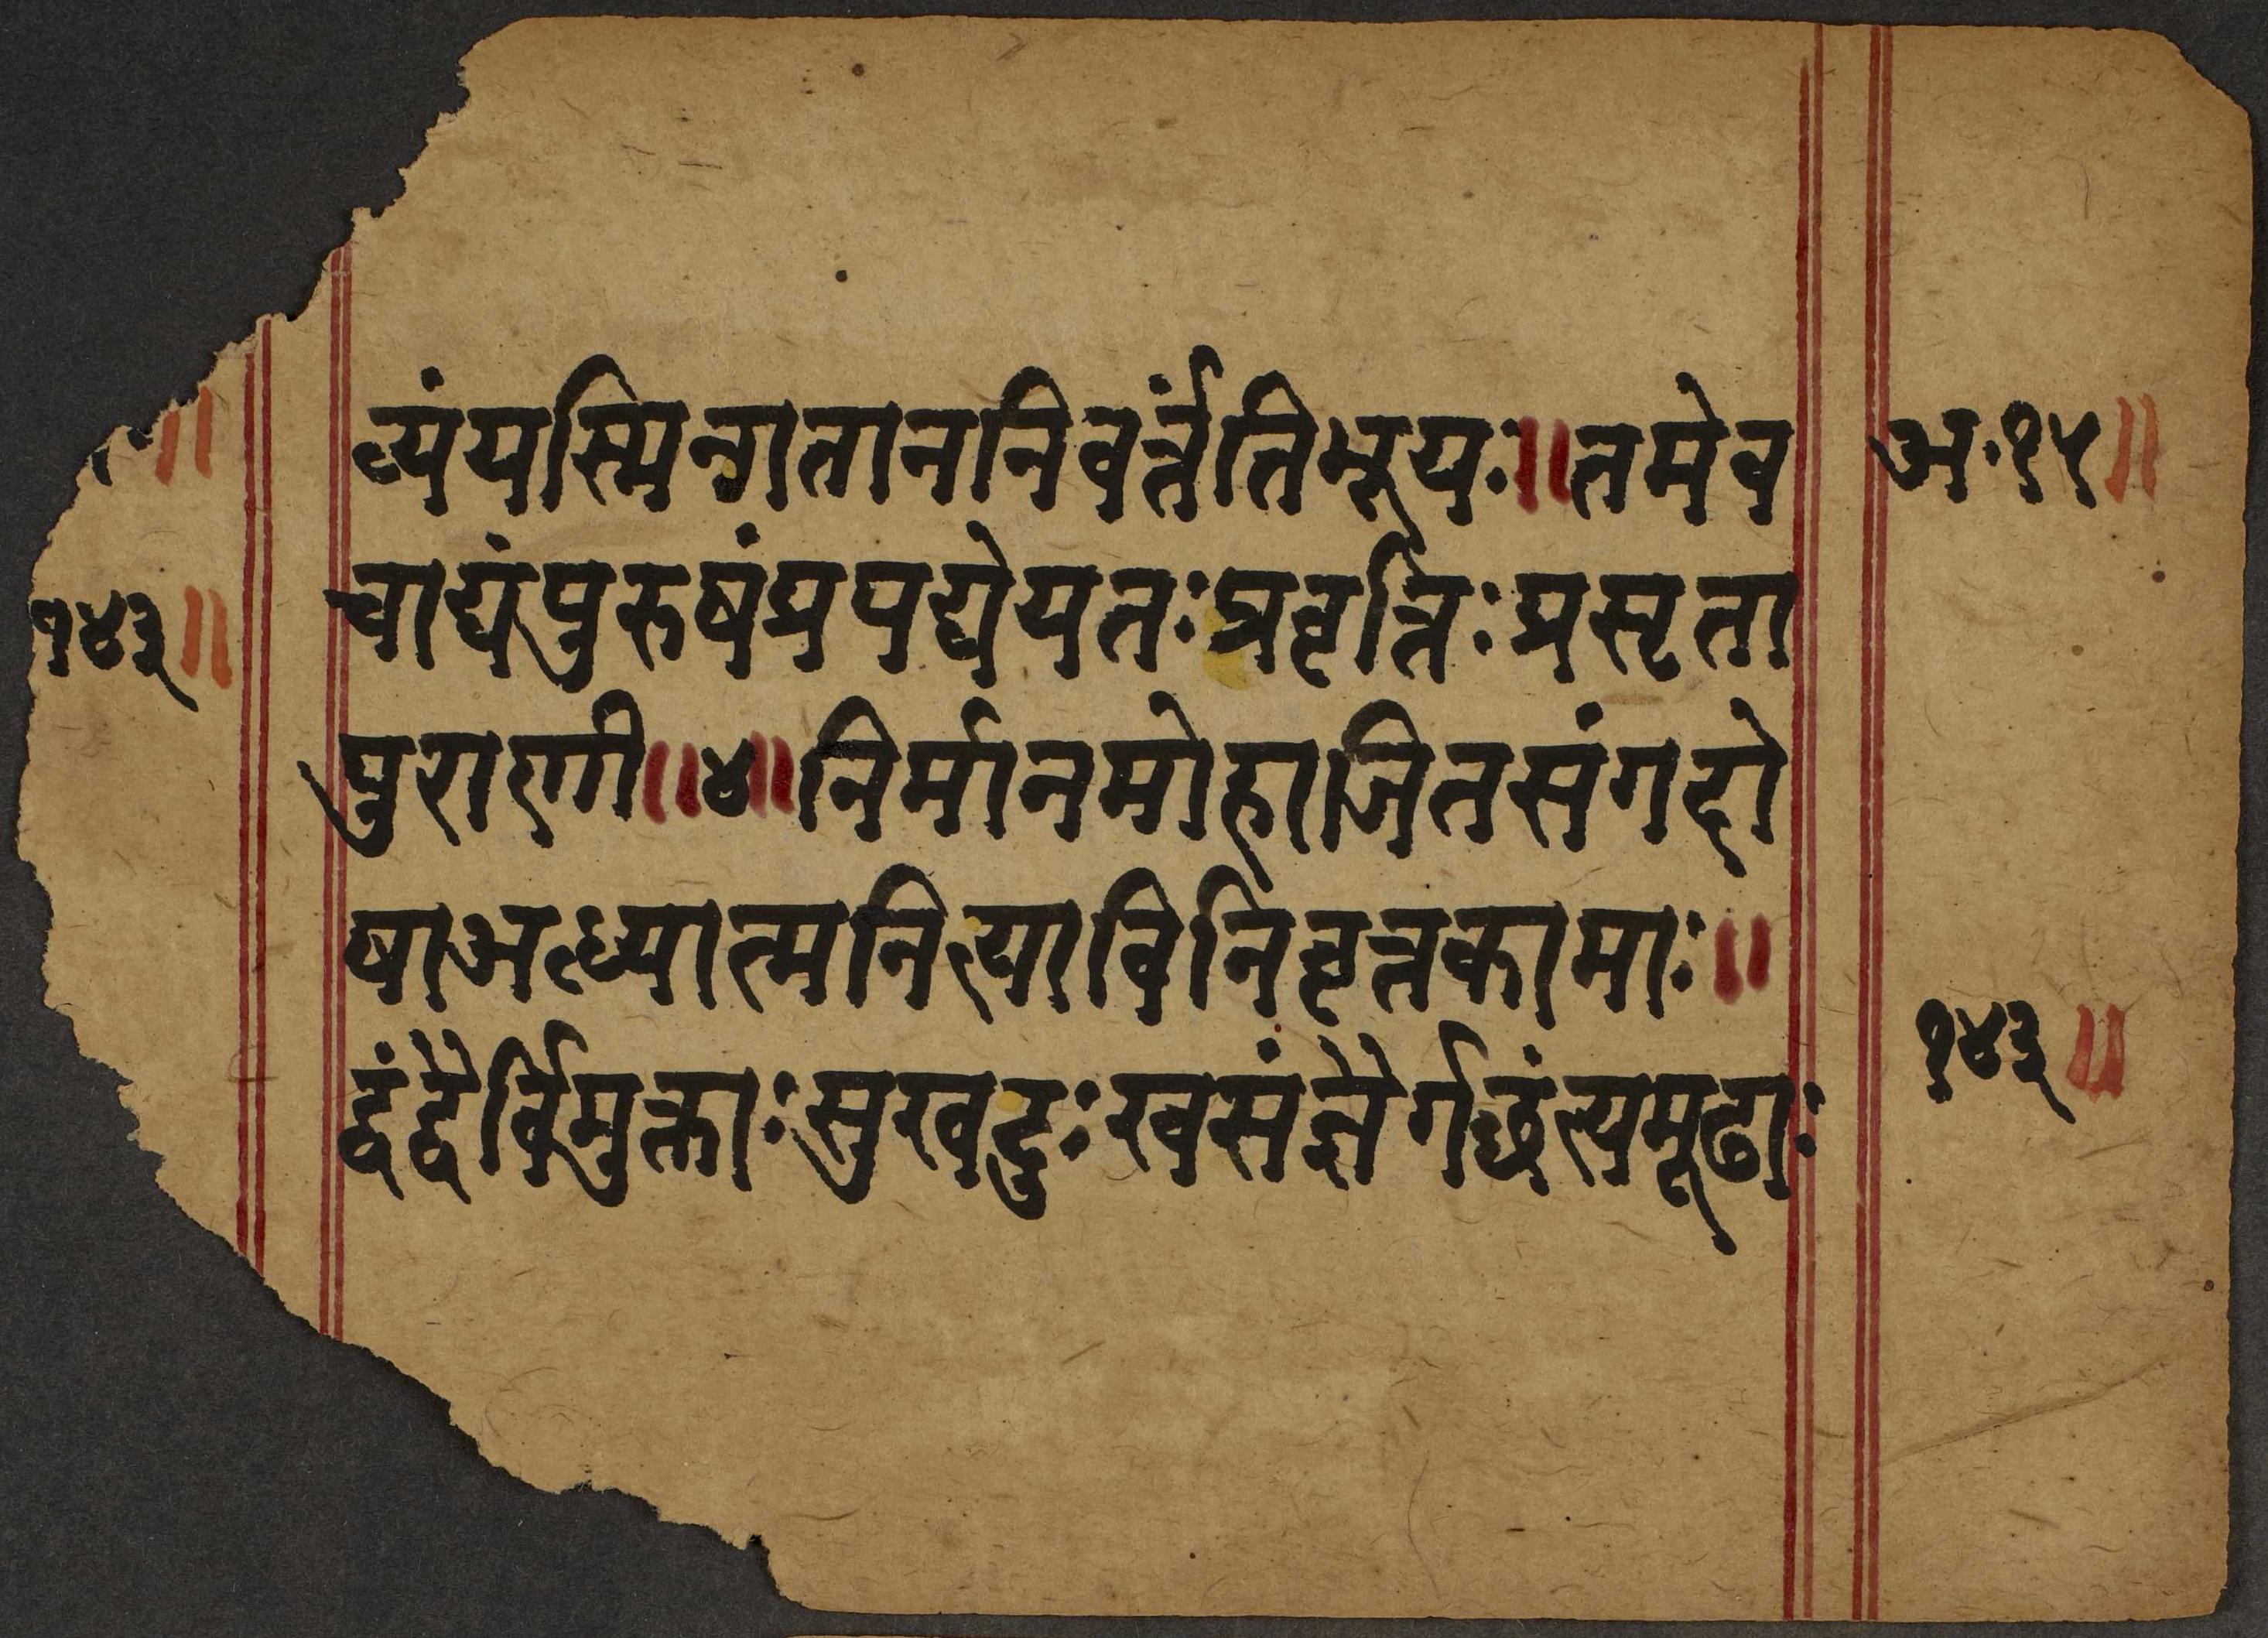 व्यंयस्मिन्गताननिवर्त्तंतिभूयः॥तमेव
चाद्यंपुरुषंप्रपद्येयतःप्रवृत्तिःप्रसृता
पुराणी॥४॥निर्मानमोहाजितसंगदो
षाअध्यात्मनित्याविनिवृत्तकामाः॥
द्वंद्वैर्विमुक्ताःसुखदुःखसंज्ञैर्गछंत्यमूढाः
अ·१५॥
१४३॥
१४३॥